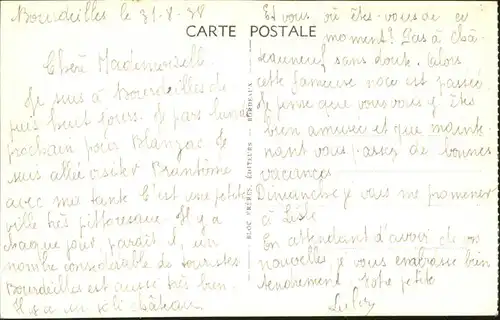 Bourdeilles le 31-8-38
CARTE POSTALE
Chère Mademoiselle
Je suis à Bourdeilles de
puis huit jours. Je pars lundi
prochain pour Blanzac. Je
suis allée visiter Brantôme
avec ma tante. C'est une petite
ville très pittoresque. Il y a
chaque jour, paraît il, un
nombre considérable de touristes
Bourdeilles est aussi très bien.
Il y a un joli château.
BLOC FRÈRES, ÉDITEURS BORDEAUX
Et vous où êtes-vous de ce
moment? Pas à Châ-
teauneuf sans doute. Alors
cette fameuse noce est passée.
Je pense que vous vous y êtes
bien amusée et que mainte
nant vous passez de bonnes
vacances
Dimanche je vais me promener
à
En attendant d'avoir de vos
nouvelles je vous embrasse bien
tendrement. Votre petite